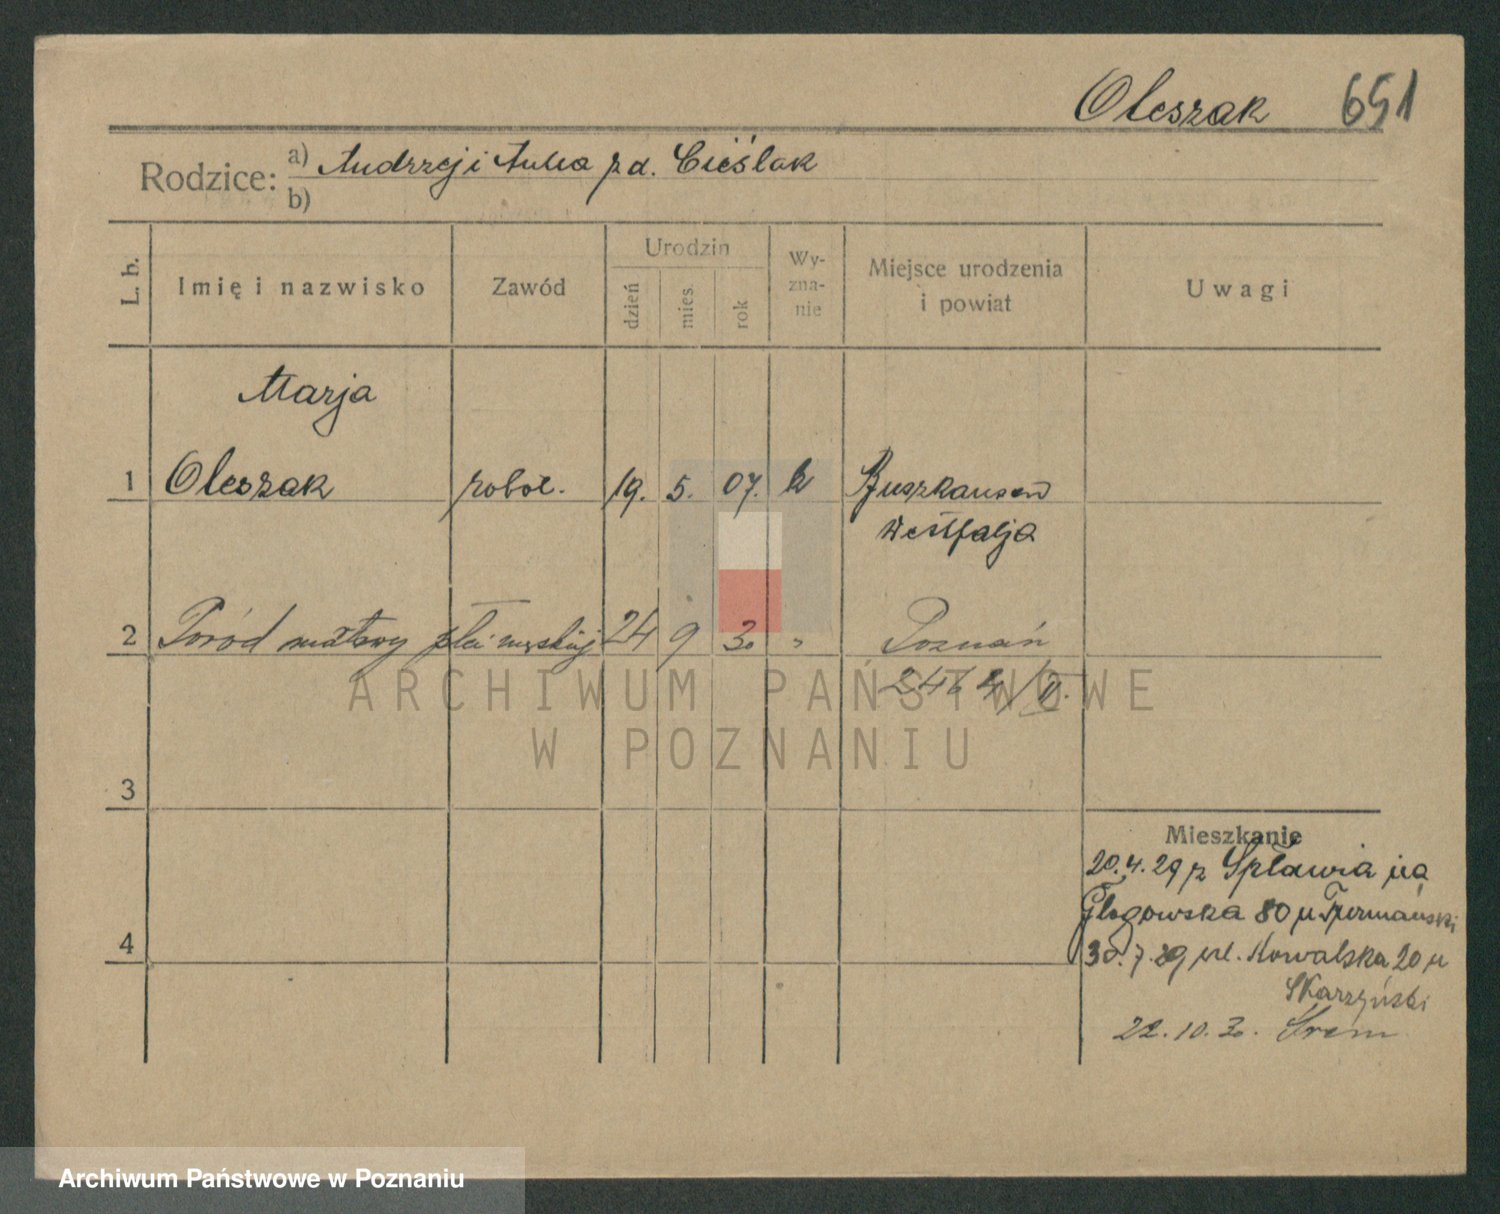 Oleszak 651
Rodzice: a) Andrzej i Anna z d. Cieślak
b)
L. b. Imię i nazwisko Zawód Urodzin dzień mies. rok Wyznanie Miejsce urodzenia i powiat Uwagi
Marja
1 Oleszak robot. 19. 5. 07. k
Westfalja
2 Poród martwy płci męskiej 24 9 30 " Poznań
3
Mieszkanie
20.4.29 z Spławia na
Głogowska 80 u
4
30.7.29 ul. Kowalska 20 u
Skarzyński
22.10.30. Śrem
ARCHIWUM PAŃSTWOWE
W POZNANIU
Archiwum Państwowe w Poznaniu